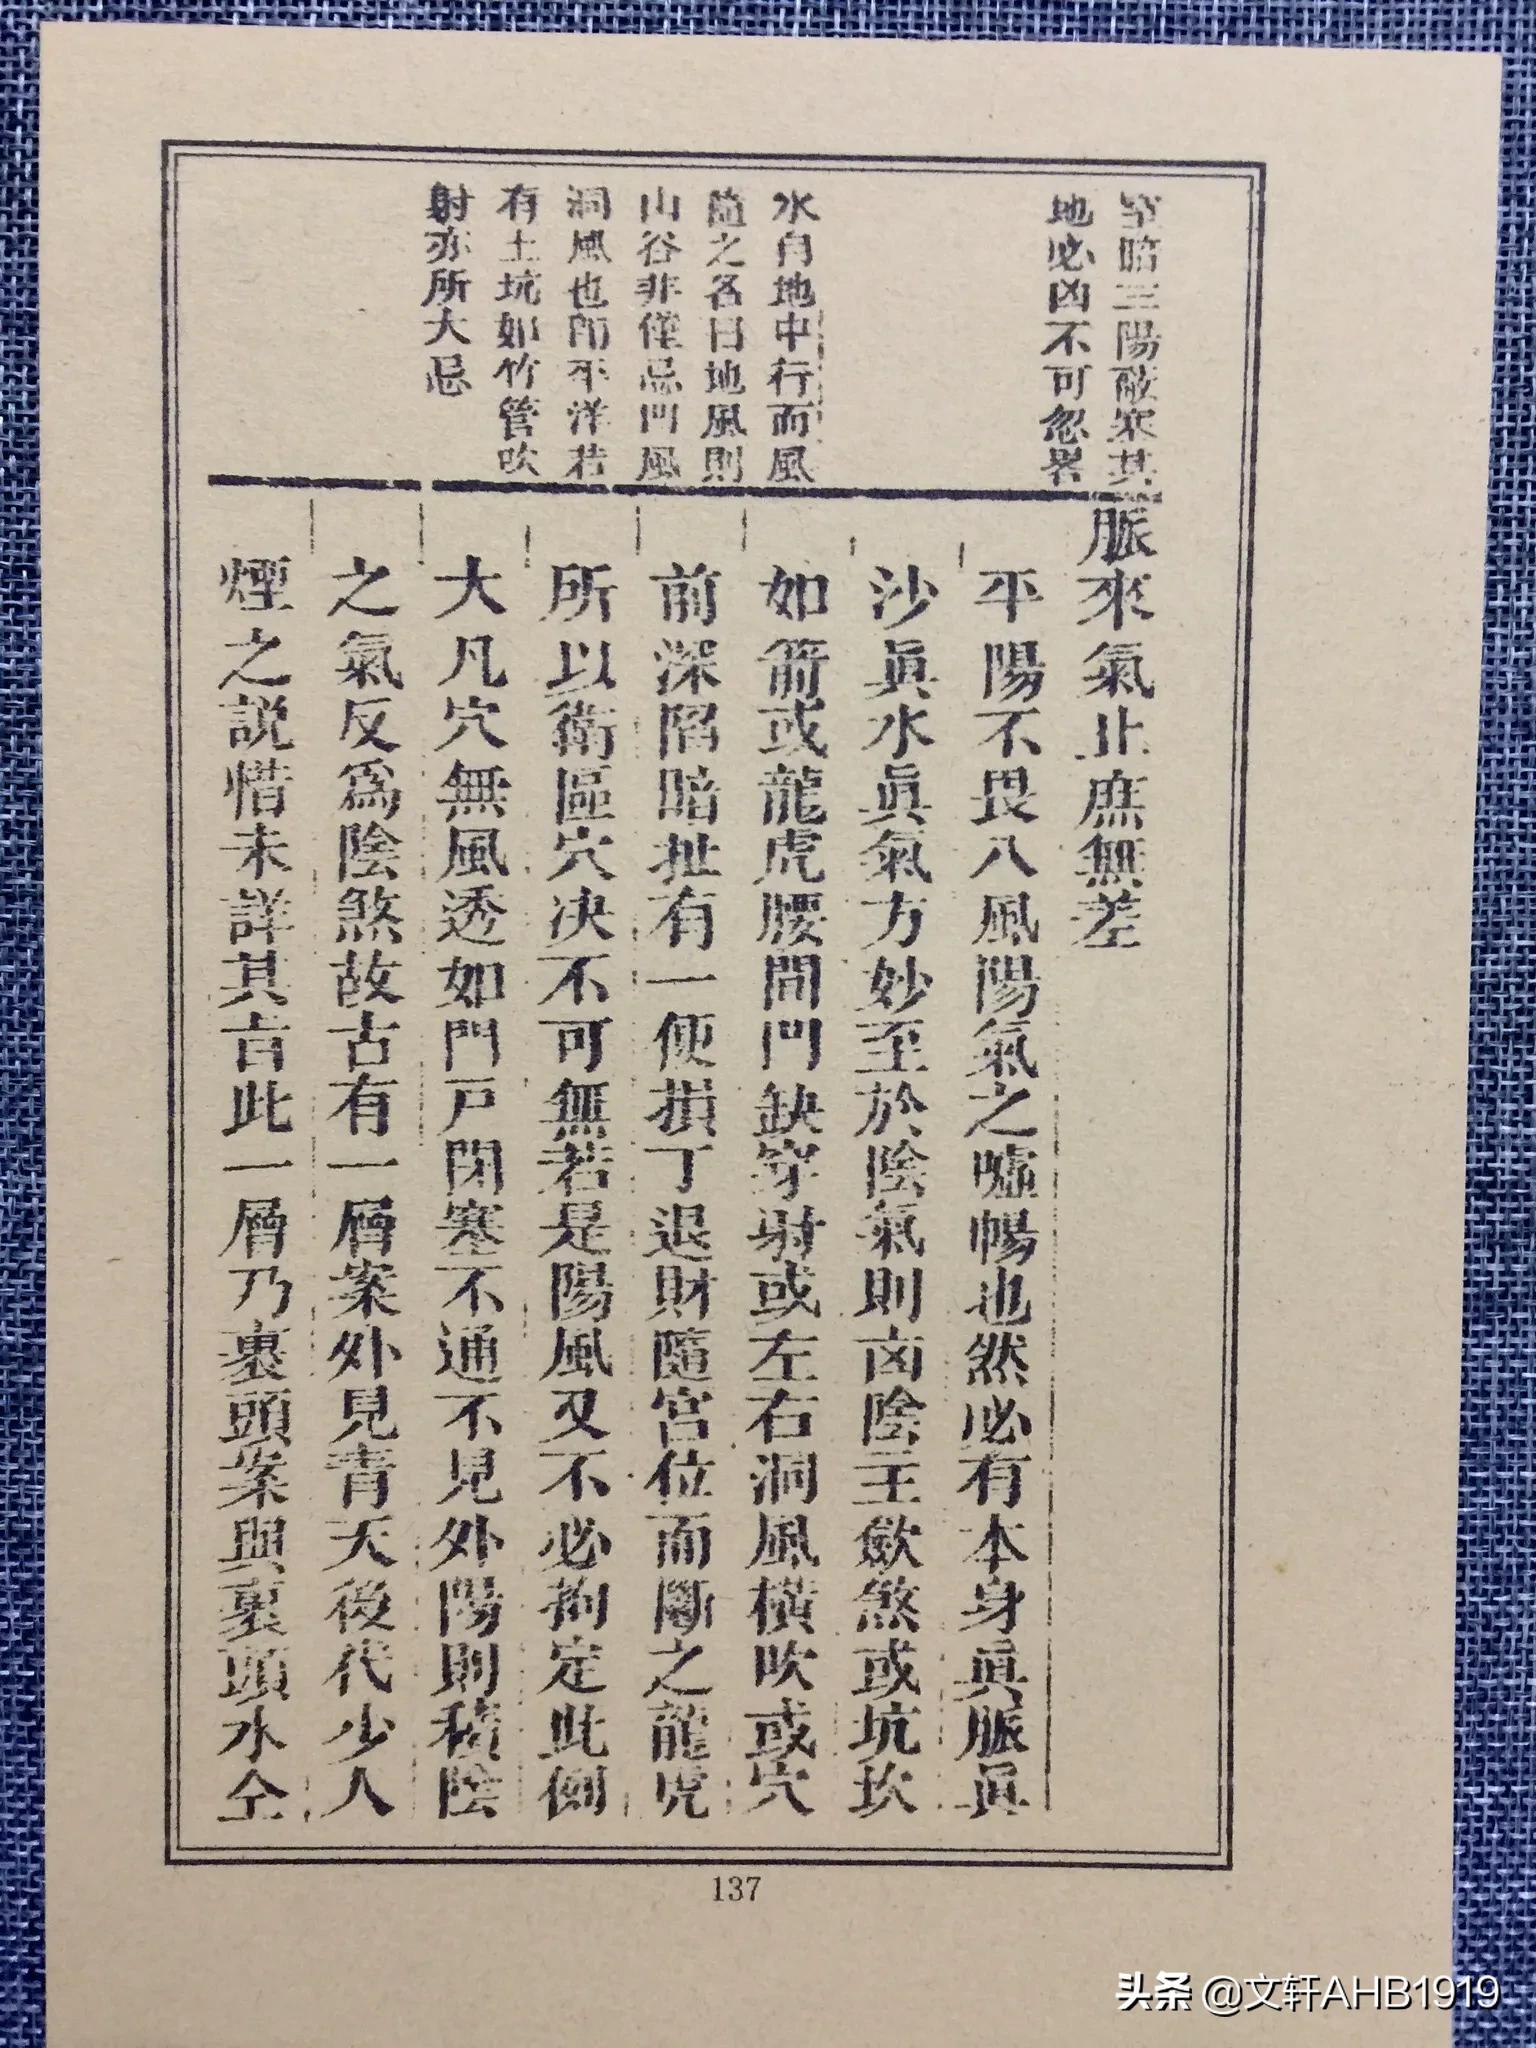 室暗三陽蔽塞其
地必凶不可忽畧
水自地中行而風
隨之名曰地風則
山谷非僅忌凹風
洞風也即平洋若
有土坑如竹管吹
射亦所大忌
脈來氣止庶無差
平陽不畏八風陽氣之噓暢也然必有本身眞脈眞
沙眞水眞氣方妙至於陰氣則凶陰主斂煞或坑坎
如箭或龍虎腰間凹缺穿射或左右洞風橫吹或穴
前深陷暗扯有一便損丁退財隨宮位而斷之龍虎
所以衛區穴决不可無若是陽風又不必拘定此倒
大凡穴無風透如門戸閉塞不通不見外陽則積陰
之氣反爲陰煞故古有一層案外見青天後代少人
煙之説惜未詳其旨此一層乃裹頭案與裹頭水仝
137
头条 @文轩AHB1919